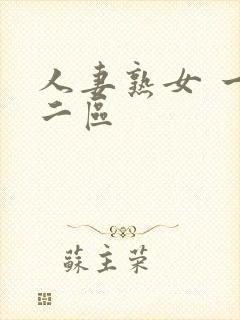 人妻熟女 一
二區
蘇主荣